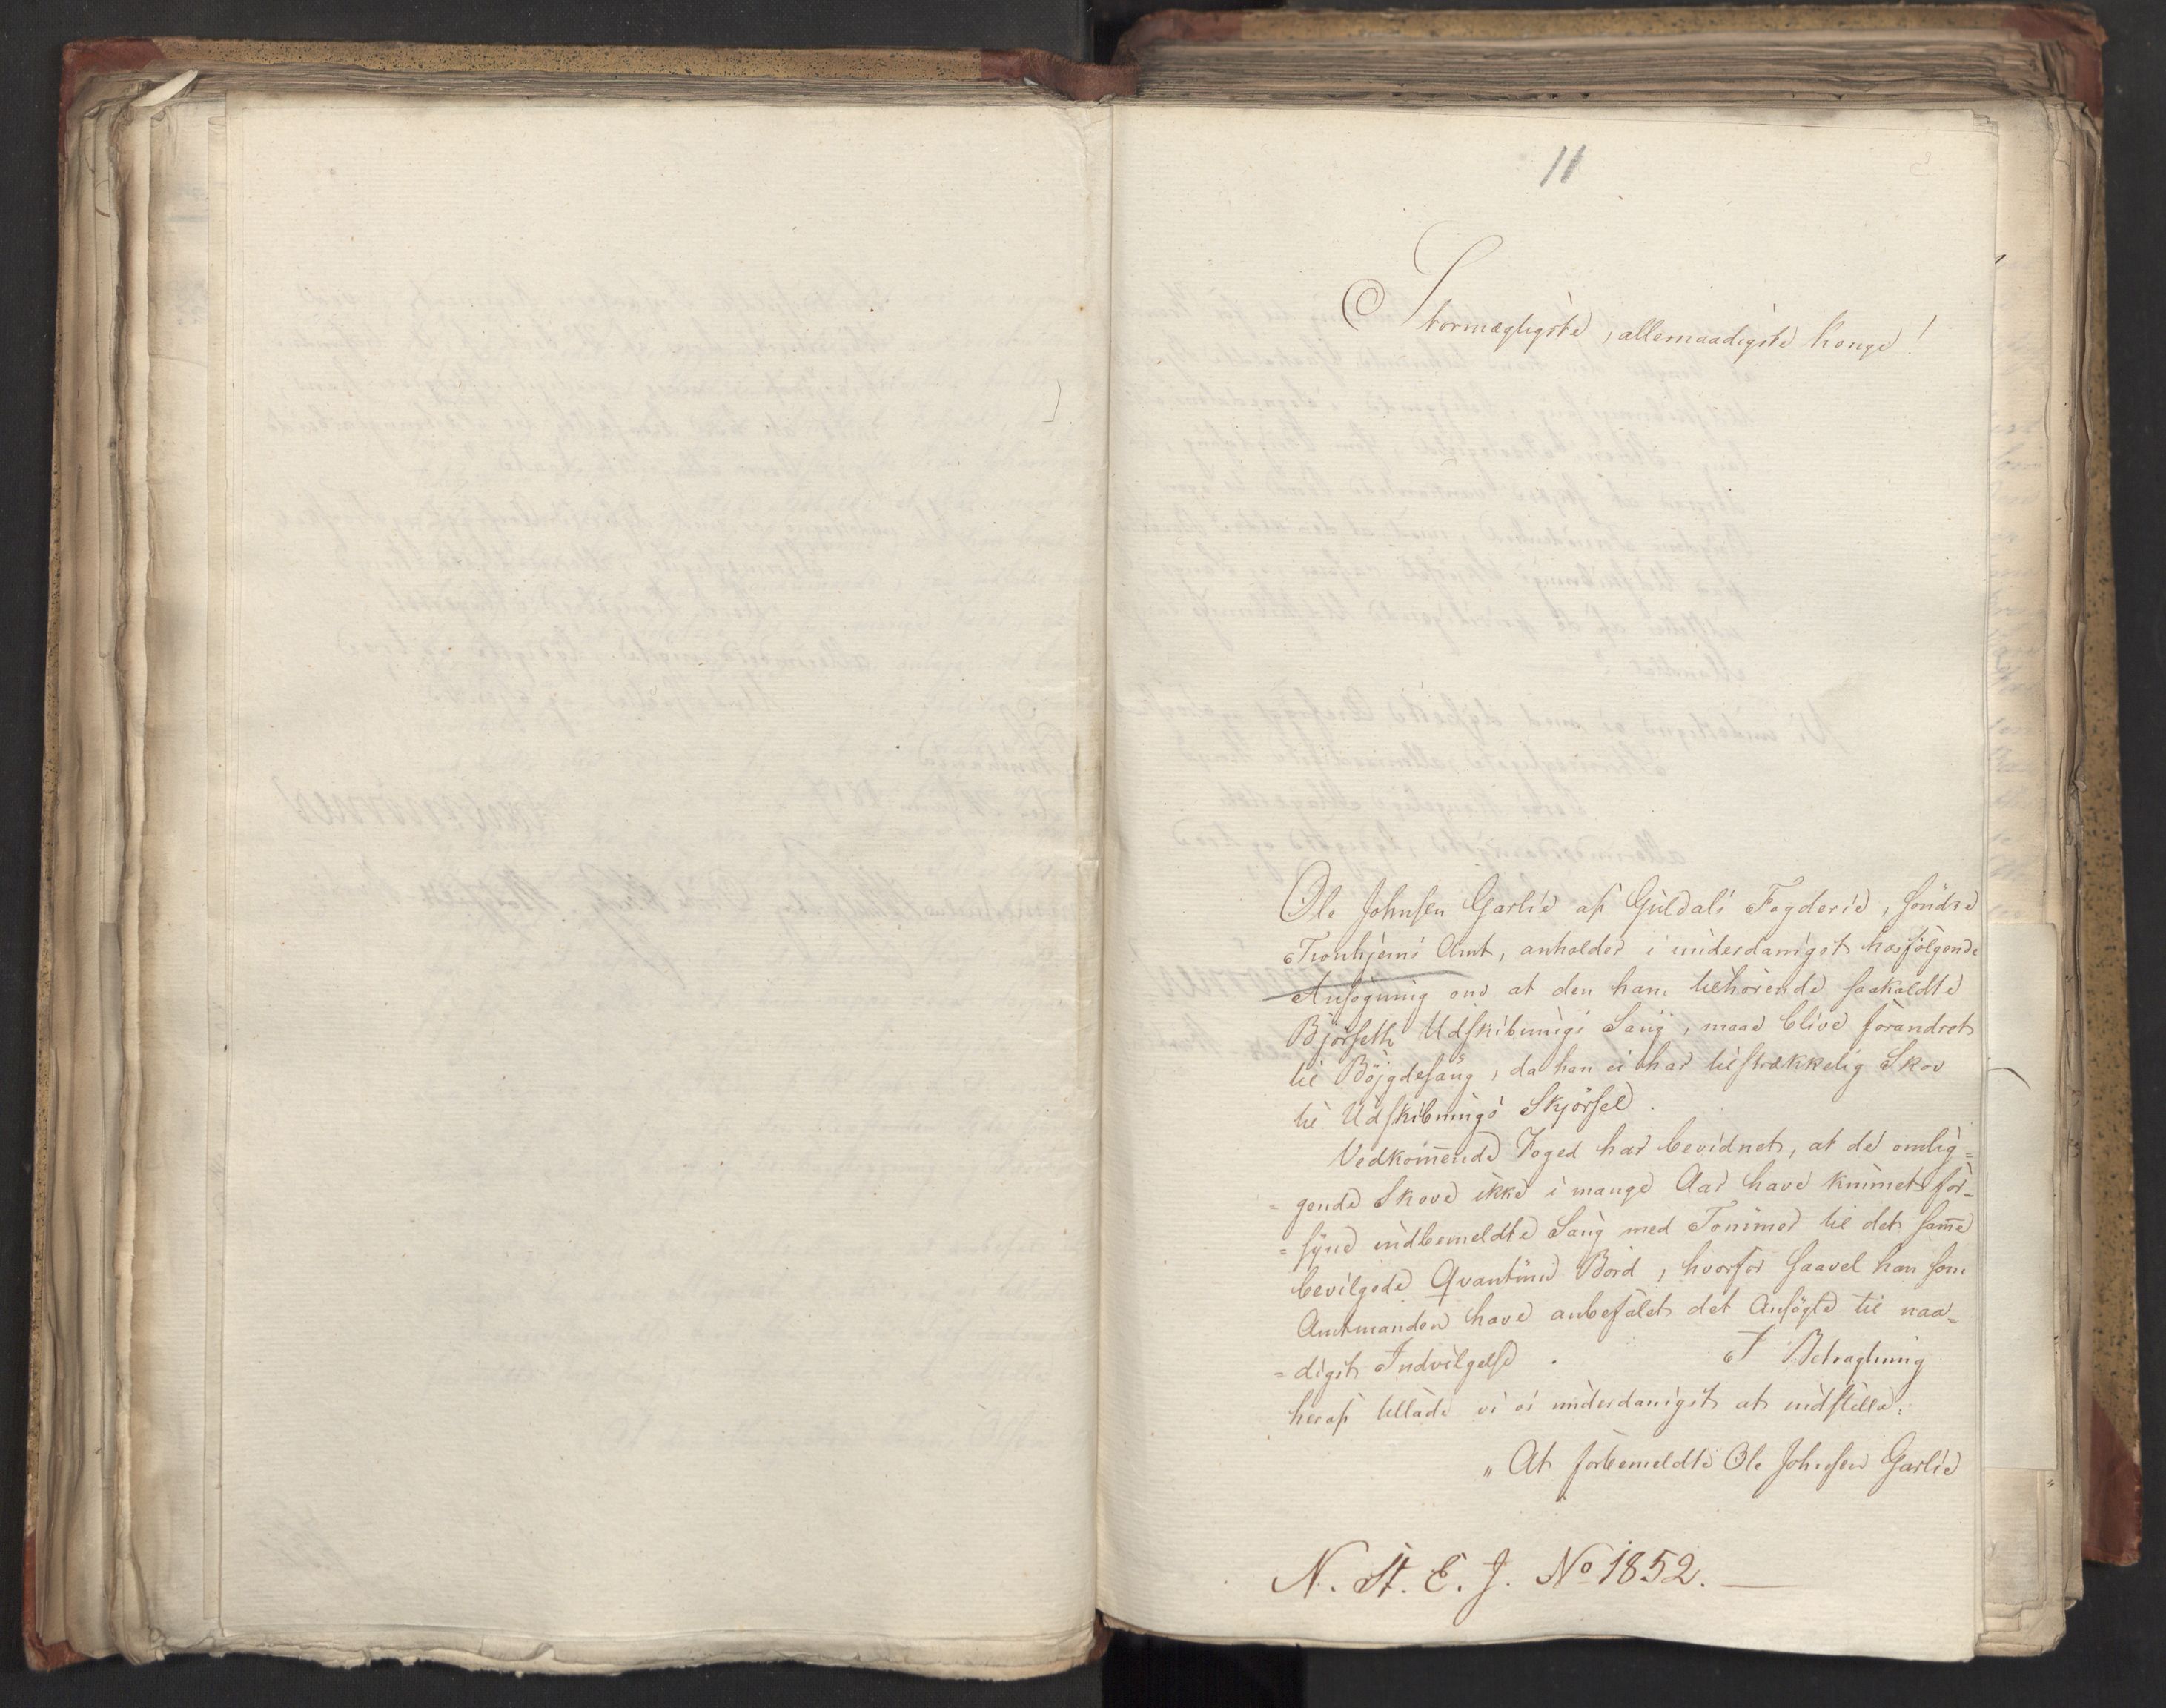 11
Stormægtigste, allernaadigste Konge!
Ole Johnsen Garlie af Guldals Fogderie, söndre
Tronhjems Amt, anholder i underdanigst hosfölgende
Ansögning om at den ham tilhörende saakaldte
Björseth Udskibnings Saug, maae blive forandret
til Böigdesaug, da han ei har tilstrækkelig Skov
til Udskibnings Skjörsel.
Vedkom̅ende Foged har bevidnet, at de omlig=
=gende Skove ikke i mange Aar have kunnet for=
=syne indbemeldte Saug med Tömmer til det sam̅e
bevilgede Qvantum Bord, hvorfor saavel han som
Amtmanden have anbefalet det Ansögte til naa=
=digst Indvilgelse. I Betragtning
heraf tillade vi os underdanigst at indstille:
"At forbemeldte Ole Johnsen Garlie
N. St. E. J. No 1852.